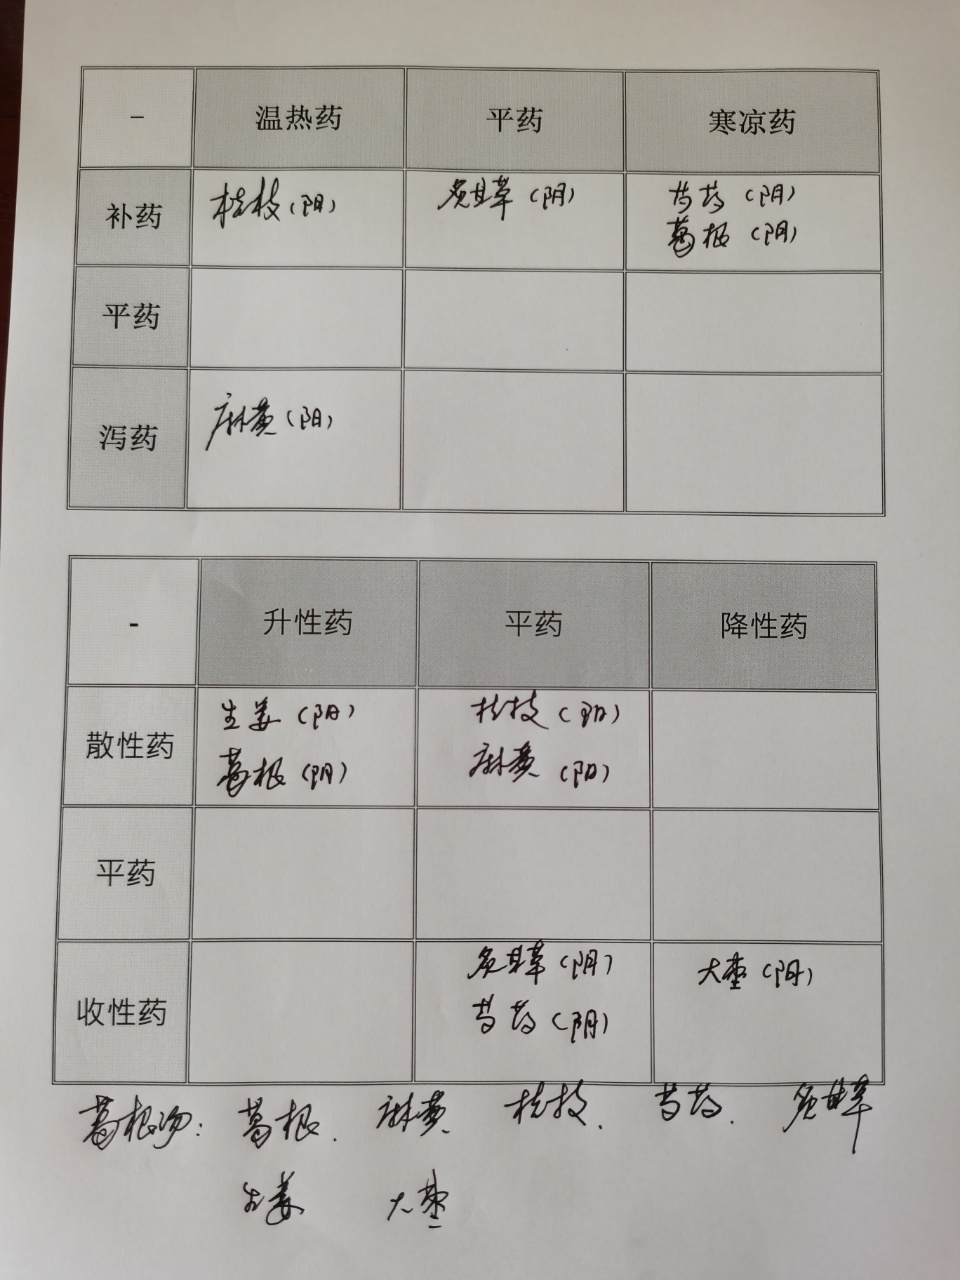 - 温热药 平药 寒凉药
补药 桂枝（阳） 炙甘草（阴） 芍药（阴）
葛根（阴）
平药
泻药 麻黄（阳）
- 升性药 平药 降性药
散性药 生姜（阳） 桂枝（阳）
葛根（阴） 麻黄（阳）
平药
收性药 炙甘草（阴） 大枣（阴）
芍药（阴）
葛根汤：葛根. 麻黄 桂枝. 芍药. 炙甘草
生姜 大枣